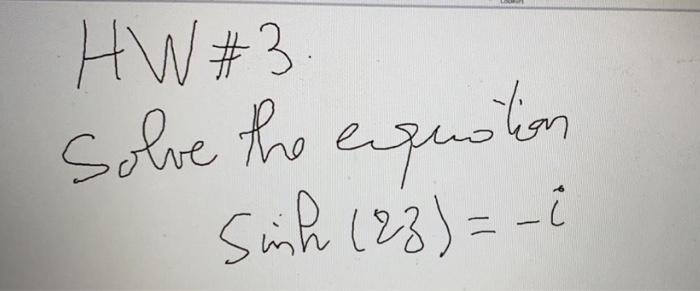 HW #3.
Solve the equation
sinh (2z) = -i